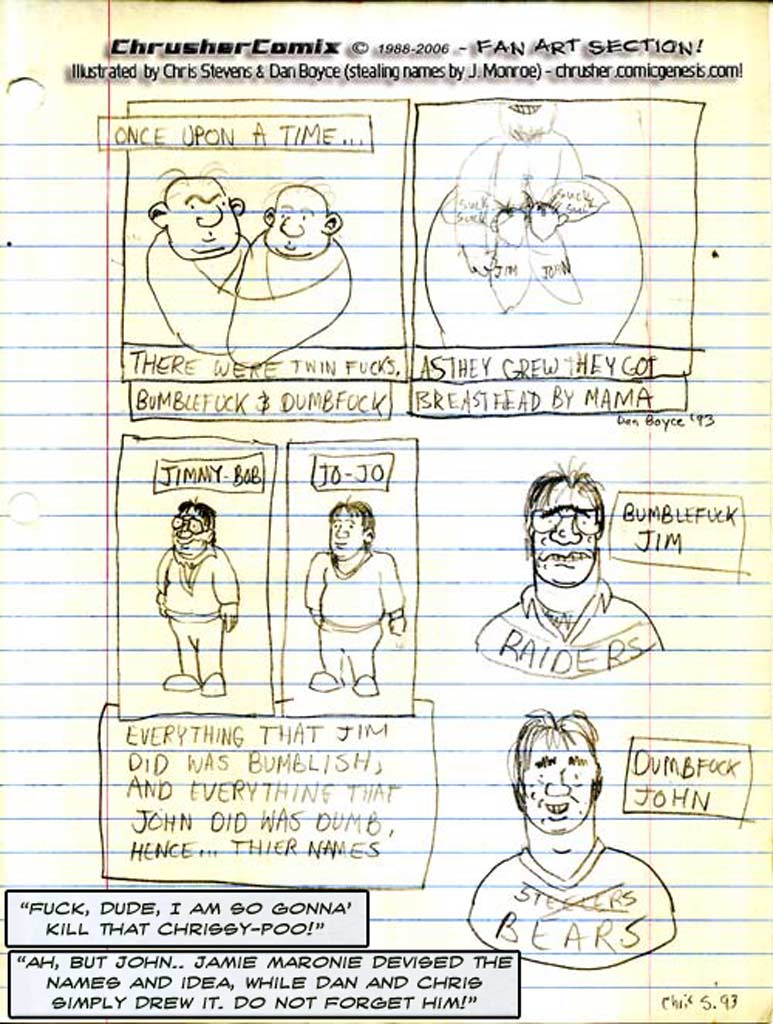 ChrusherComix © 1988-2006 - FAN ART SECTION!
Illustrated by Chris Stevens & Dan Boyce (stealing names by J. Monroe) - chrusher.comicgenesis.com!
ONCE UPON A TIME...
THERE WERE TWIN FUCKS,
BUMBLEFUCK & DUMBFUCK
SUCK
SUCK
SUCK
SUCK
JIM
JOHN
AS THEY GREW THEY GOT
BREASTFEAD BY MAMA
Dan Boyce '93
JIMMY-BOB
JO-JO
BUMBLEFUCK
JIM
RAIDERS
EVERYTHING THAT JIM
DID WAS BUMBLISH,
AND EVERYTHING THAT
JOHN DID WAS DUMB,
HENCE... THIER NAMES
DUMBFUCK
JOHN
STEELERS
BEARS
"FUCK, DUDE, I AM SO GONNA'
KILL THAT CHRISSY-POO!"
"AH, BUT JOHN.. JAMIE MARONIE DEVISED THE
NAMES AND IDEA, WHILE DAN AND CHRIS
SIMPLY DREW IT. DO NOT FORGET HIM!"
Chris S. 93